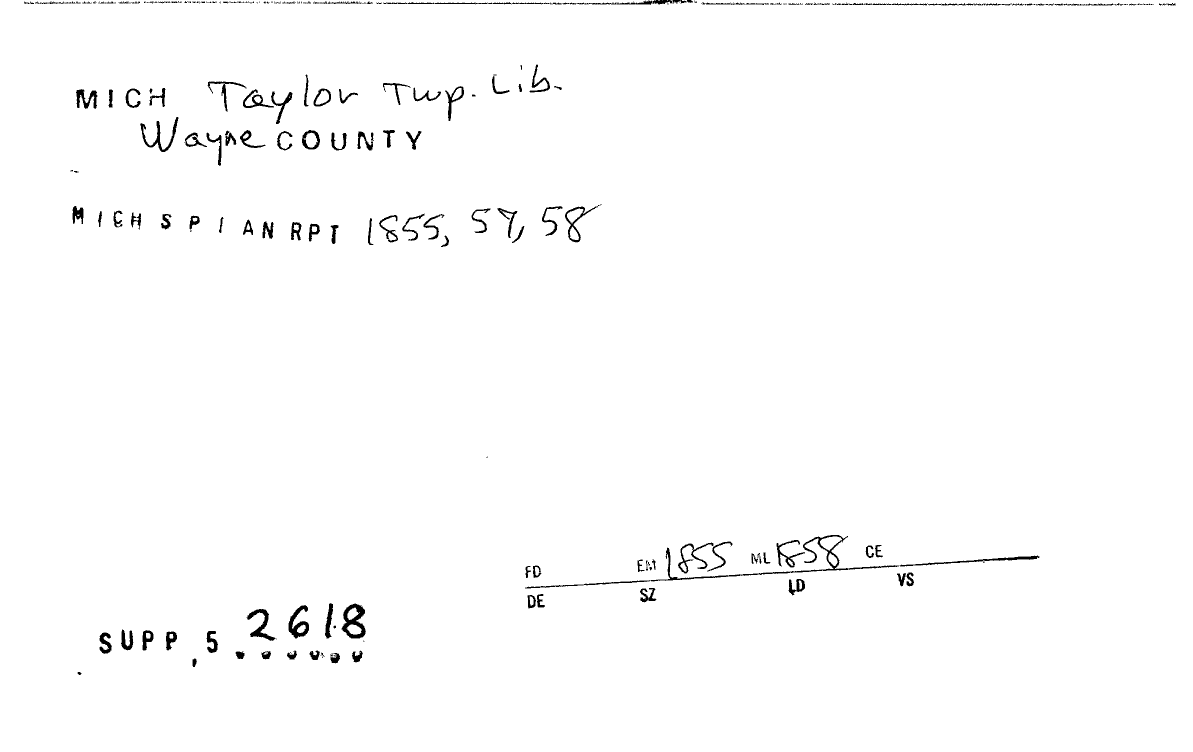 MICH Taylor Twp. Lib.
Wayne COUNTY
MICH S P I AN RPT 1855, 57, 58
FD EM 1855 ML 1858 CE
DE SZ LD VS
SUPP, 5 2618